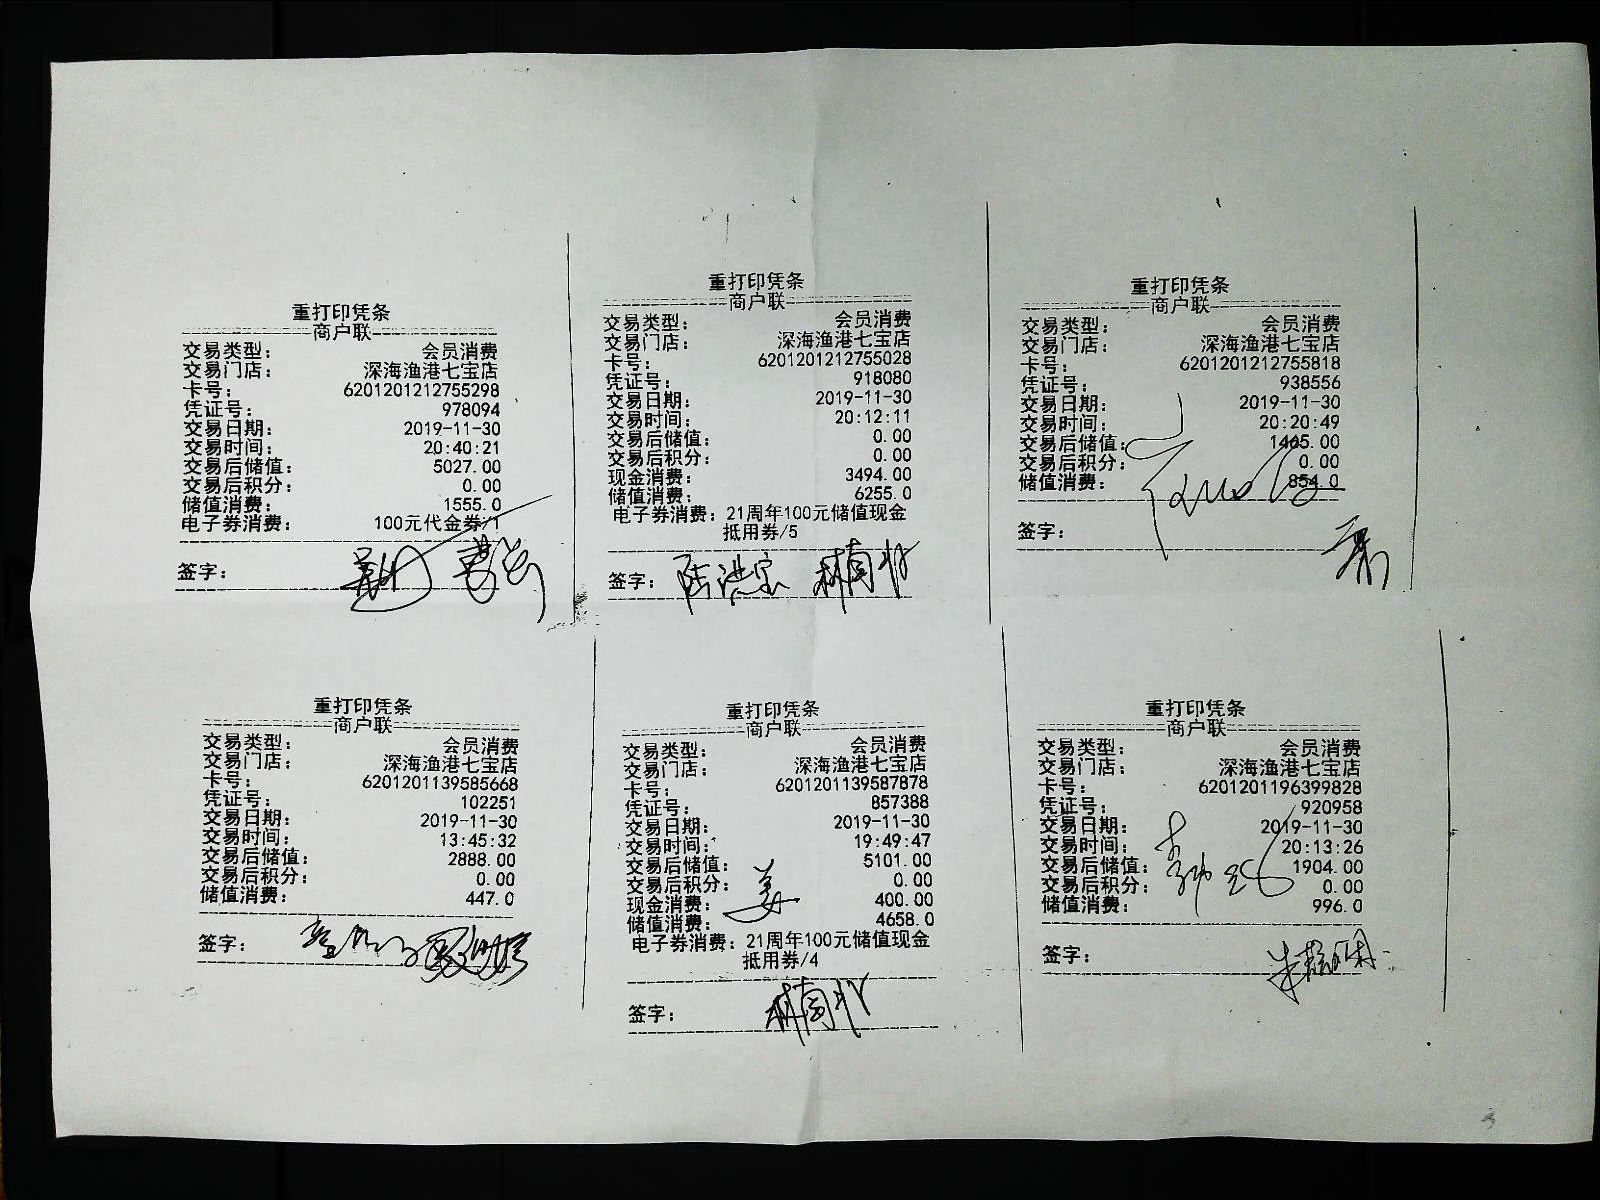 重打印凭条
商户联
交易类型： 会员消费
交易门店： 深海渔港七宝店
卡号： 6201201212755298
凭证号： 978094
交易日期： 2019-11-30
交易时间： 20:40:21
交易后储值： 5027.00
交易后积分： 0.00
储值消费： 1555.0
电子券消费： 100元代金券/1
签字：
重打印凭条
商户联
交易类型： 会员消费
交易门店： 深海渔港七宝店
卡号： 6201201212755028
凭证号： 918080
交易日期： 2019-11-30
交易时间： 20:12:11
交易后储值： 0.00
交易后积分： 0.00
现金消费： 3494.00
储值消费： 6255.0
电子券消费：21周年100元储值现金
抵用券/5
签字：
重打印凭条
商户联
交易类型： 会员消费
交易门店： 深海渔港七宝店
卡号： 6201201212755818
凭证号： 938556
交易日期： 2019-11-30
交易时间： 20:20:49
交易后储值： 1405.00
交易后积分： 0.00
储值消费： 854.0
签字：
重打印凭条
商户联
交易类型： 会员消费
交易门店： 深海渔港七宝店
卡号： 6201201139585668
凭证号： 102251
交易日期： 2019-11-30
交易时间： 13:45:32
交易后储值： 2888.00
交易后积分： 0.00
储值消费： 447.0
签字：
重打印凭条
商户联
交易类型： 会员消费
交易门店： 深海渔港七宝店
卡号： 6201201139587878
凭证号： 857388
交易日期： 2019-11-30
交易时间： 19:49:47
交易后储值： 5101.00
交易后积分： 0.00
现金消费： 400.00
储值消费： 4658.0
电子券消费：21周年100元储值现金
抵用券/4
签字：
姜
重打印凭条
商户联
交易类型： 会员消费
交易门店： 深海渔港七宝店
卡号： 6201201196399828
凭证号： 920958
交易日期： 2019-11-30
交易时间： 20:13:26
交易后储值： 1904.00
交易后积分： 0.00
储值消费： 996.0
签字：